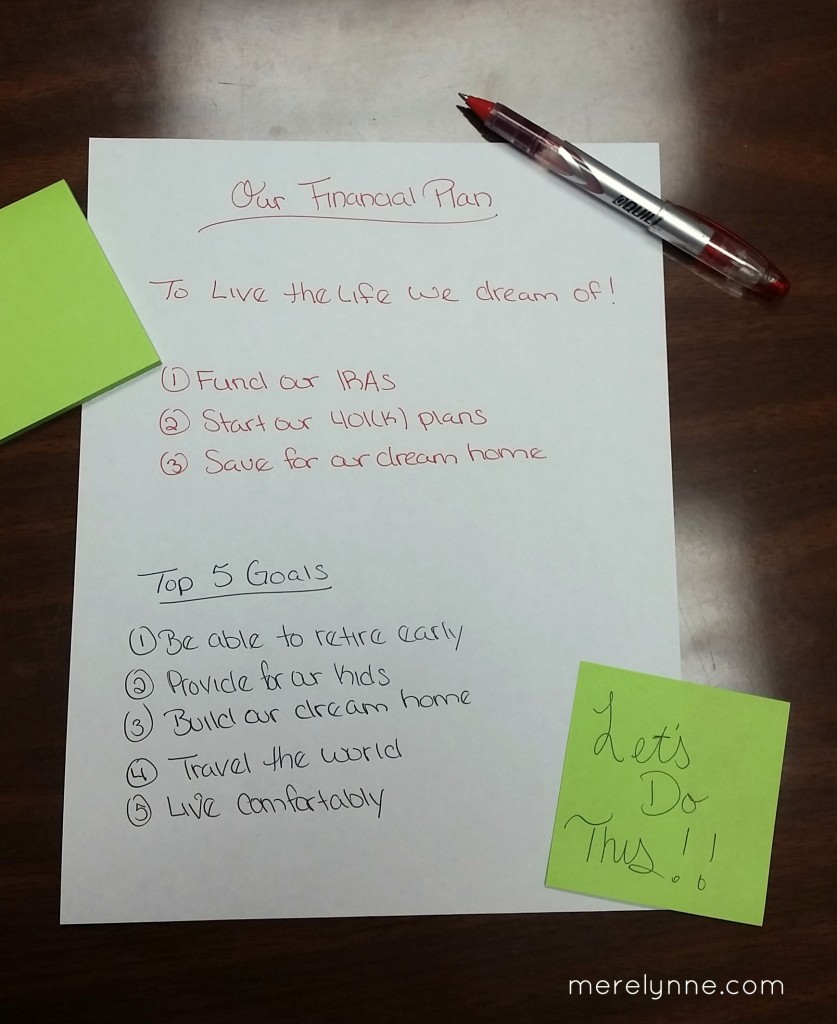 Our Financial Plan
To Live the Life we dream of!
① Fund our IRAs
② Start our 401(k) plans
③ Save for our dream home
Top 5 Goals
① Be able to retire early
② Provide for our kids
③ Build our dream home
④ Travel the world
⑤ Live comfortably
Let's
Do
This!!
merelynne.com